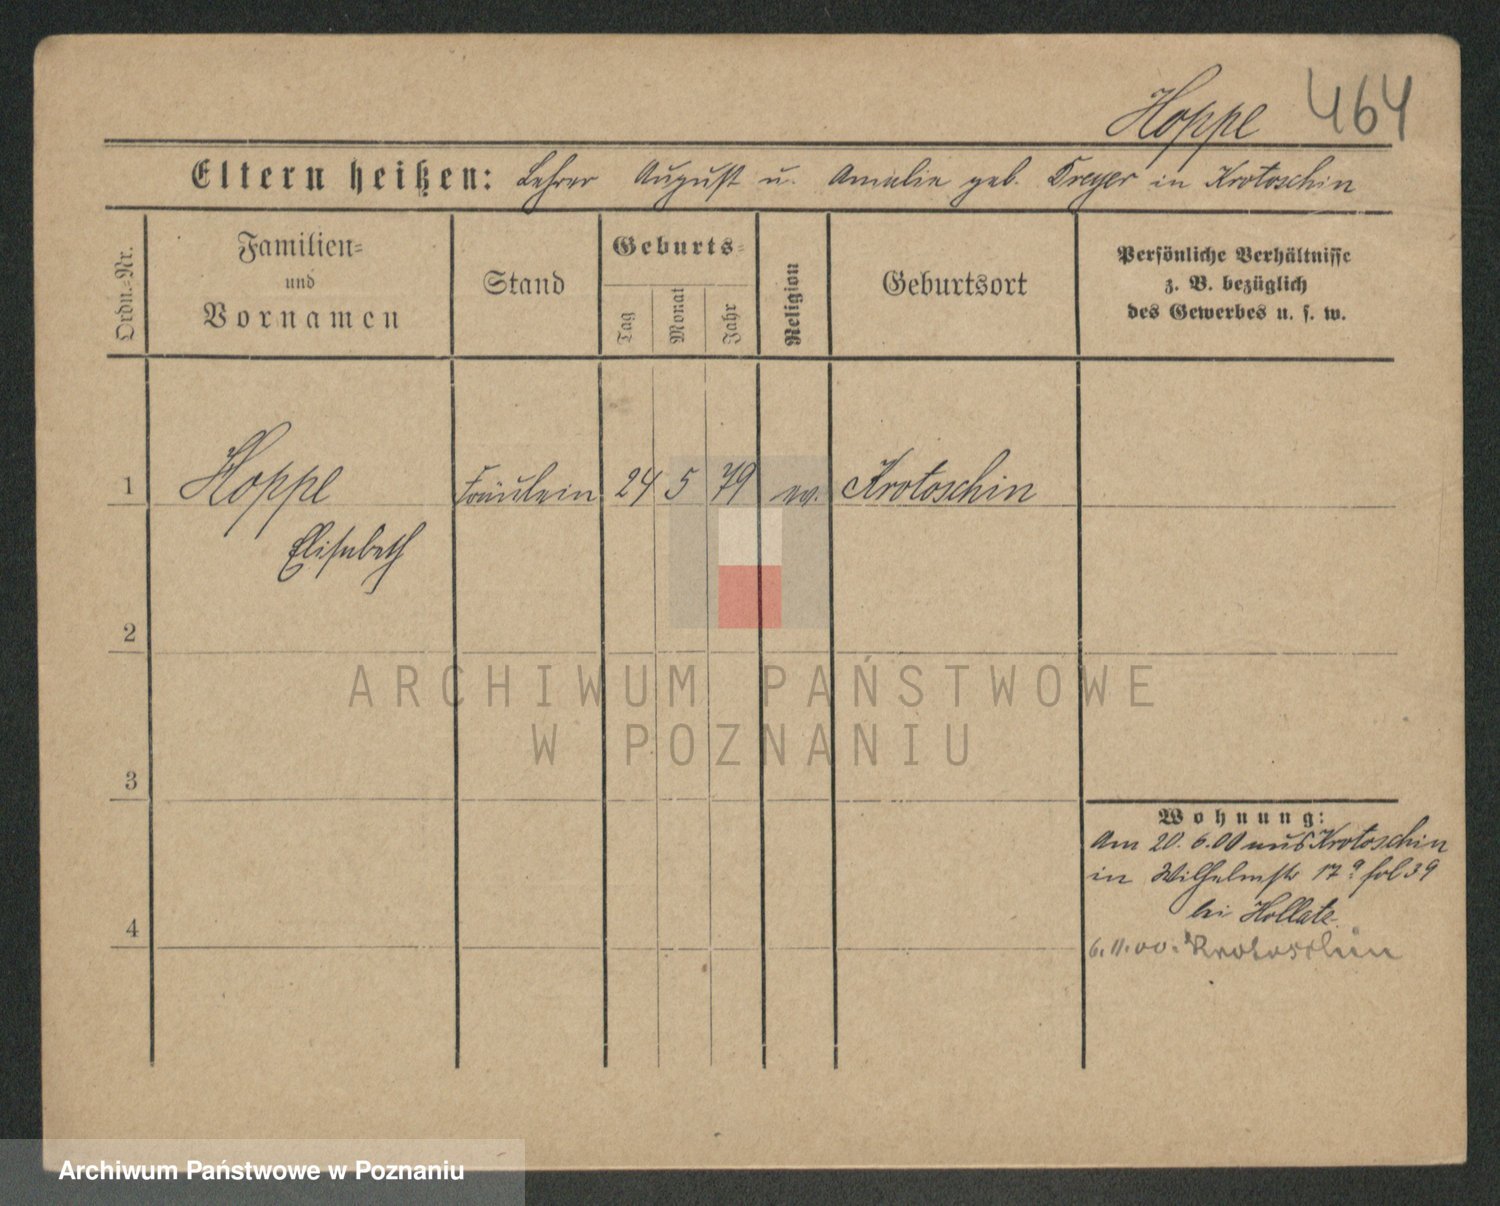 Hoppe 464
Eltern heißen: Lehrer August u. Amalie geb. Dreyer in Krotoschin
Ordn.-Nr.
Familien-
und
Vornamen
Stand
Geburts-
Tag
Monat
Jahr
Religion
Geburtsort
Persönliche Verhältnisse
z. B. bezüglich
des Gewerbes u. s. w.
1 Hoppe Fräulein 24 5 79 ev. Krotoschin
Elisabeth
2
ARCHIWUM PAŃSTWOWE
W POZNANIU
3
Wohnung:
Am 20. 6. 00 aus Krotoschin
in Wilhelmstr 17 fol 39
bei Hollatz
4
6. 11. 00. Krotoschin
Archiwum Państwowe w Poznaniu